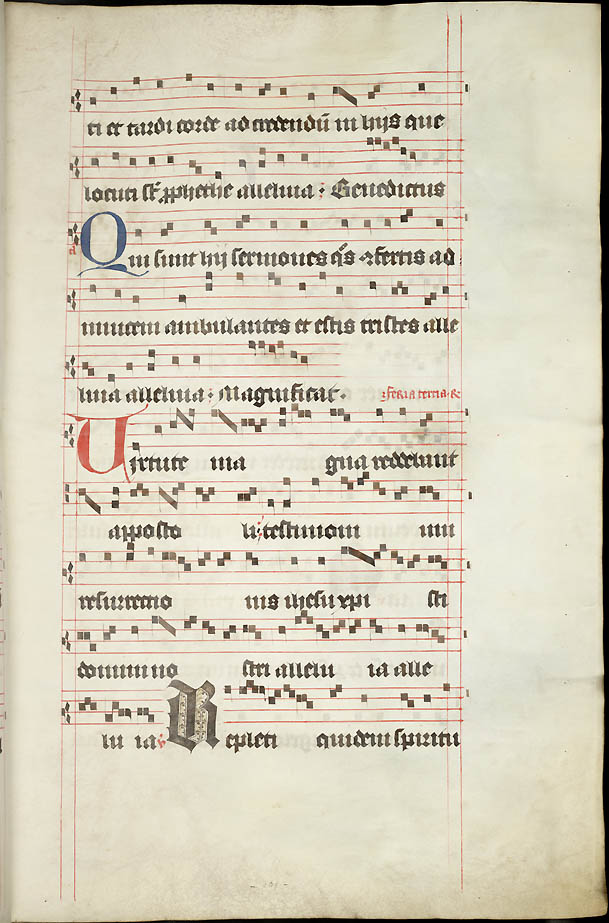 ti et tardi corde ad credendū in hijs que
locuti sūt pphethe alleluia : Benedictus
Qui sunt hij sermones qͦs ꝯfertis ad
inuicem ambulantes et estis tristes alle
luia alleluia : Magnificat . feria tertia
Uirtute ma gna reddebant
apposto li : testimoni um
resurrectio nis ihesu xpi sti
domini no stri allelu ia alle
lu ia Repleti quidem spiritu